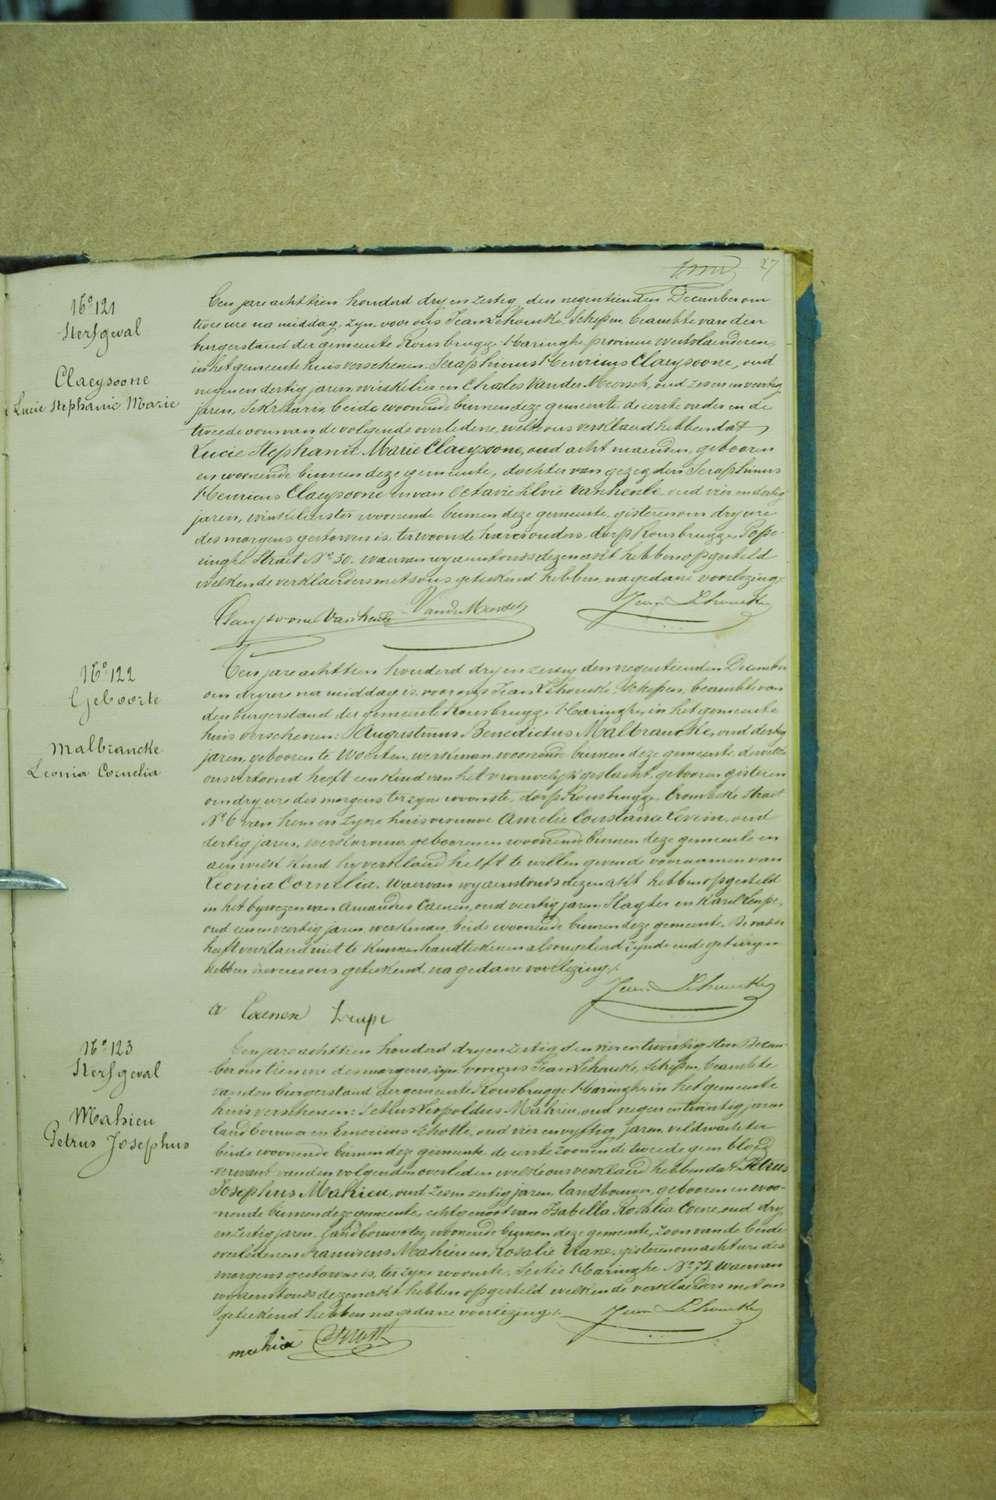 27
N° 121
Sterfgeval
Claeysoone
Lucie Stephanie Marie
Een jare achttien honderd dry en zestig den negentienden December om
twee ure na middag, zyn voor ons Jean Schoucke, Schepen, beambte van den
burgerstand der gemeente Rousbrugge-Haringhe provincie Westvlaenderen,
in het gemeente huis verschenen Seraphinus Henricus Claeysoone, oud
negen en dertig jaren, winkelier en Charles Vande Meersch, oud zes en veertig
jaren, Sekretaris beide woonende binnen deze gemeente de eerste vader en de
tweede oom van de volgende overledene, welke ons verklaerd hebben dat
Lucie Stephanie Marie Claeysoone, oud acht maenden, geboren
en woonende binnen deze gemeente, dochter van gezegden Seraphinus
Henricus Claeysoone en van Octavie Vanhende oud vier en dertig
jaren, winkelierster woonende binnen deze gemeente, gisteren om dry ure
des morgens gestorven is, ter woonste harer ouders, dorp Rousbrugge, Pope-
ringhe Straet N° 50. waervan wy aenstonds dezen akt hebben opgesteld
welken de verklaerders met ons geteekend hebben na gedane voorlezing.
Claeysoone Vanhende
N° 122
Geboorte
Malbrancke
Leonia Cornelia
Een jare achttien honderd dry en zestig den negentienden December
om dry ure na middag is voor ons Jean Schoucke, Schepen, beambte van
den burgerstand der gemeente Rousbrugge-Haringhe, in het gemeente
huis verschenen: Augustinus Benedictus Malbrancke, oud dertig
jaren, geboren te Woesten, werkman, woonende binnen deze gemeente, dewelke
ons vertoond heeft een kind van het vrouwelyk geslacht, geboren gisteren
om dry ure des morgens ter zyne woonste, dorp Rousbrugge, Crombeke Straet
N° 6 van hem en zyne huisvrouwe Amelie Constance, oud
dertig jaren, werkvrouw geboren en woonende binnen deze gemeente en
aen welk kind hy verklaerd heeft te willen geven de voornamen van
Leonia Cornelia. Waervan wy aenstonds dezen akt hebben opgesteld
in het bywezen van Amandus Caenen, oud veertig jaren Slagter en Karel Leupe,
oud een en veertig jaren, werkman, beide woonende binnen deze gemeente. De vader
heeft verklaerd niet te kunnen handteekenen als ongeleerd zynde en de getuigen
hebben nevens ons geteekend na gedane voorlezing.
a Caenen Leupe
N° 123
Sterfgeval
Mahieu
Petrus Josephus
Een jare achttien honderd dry en zestig den vier en twintigsten Decem-
ber om tien ure des morgens, zyn voor ons Jean Schoucke, Schepen, beambte
van den burgerstand der gemeente Rousbrugge-Haringhe, in het gemeente
huis verschenen: Petrus Leopoldus Mahieu, oud negen en twintig jaren
landbouwer en Emericus Scholle, oud vier en vyftig jaren, veldwachter
beide woonende binnen deze gemeente de eerste zoon en de tweede geen bloed-
verwant van den volgenden overleden welke ons verklaerd hebben dat Petrus
Josephus Mahieu, oud zeven zestig jaren, landbouwer, geboren en woo-
nende binnen deze gemeente, echtgenoot van Isabella Rosalia Coene, oud dry
en zestig jaren, landbouwster, woonende binnen deze gemeente, zoon van de beide
overledenen Franciscus Mahieu en Rosalie, gisteren om acht ure des
morgens gestorven is, ter zyne woonste, Sectie Haringhe N° 72 waervan
wy aenstonds dezen akt hebben opgesteld welken de verklaerders met ons
geteekend hebben na gedane voorlezing.
mahieu